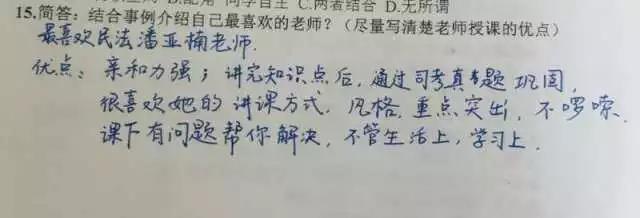 C.两者结合 D.无所谓
15.简答：结合事例介绍自己最喜欢的老师？（尽量写清楚老师授课的优点）
最喜欢民法潘亚楠老师.
优点：亲和力强；讲完知识点后,通过司考真题巩固,
很喜欢她的讲课方式.风格.重点突出,不啰嗦.
课下有问题帮你解决,不管生活上,学习上.